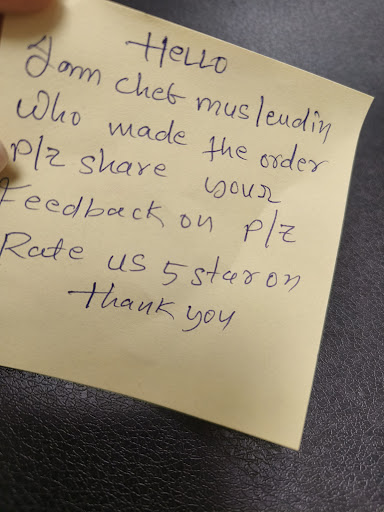 Hello
I am chef musleudin
who made the order
p/z share your
Feedback on p/z
Rate us 5 star on
thank you